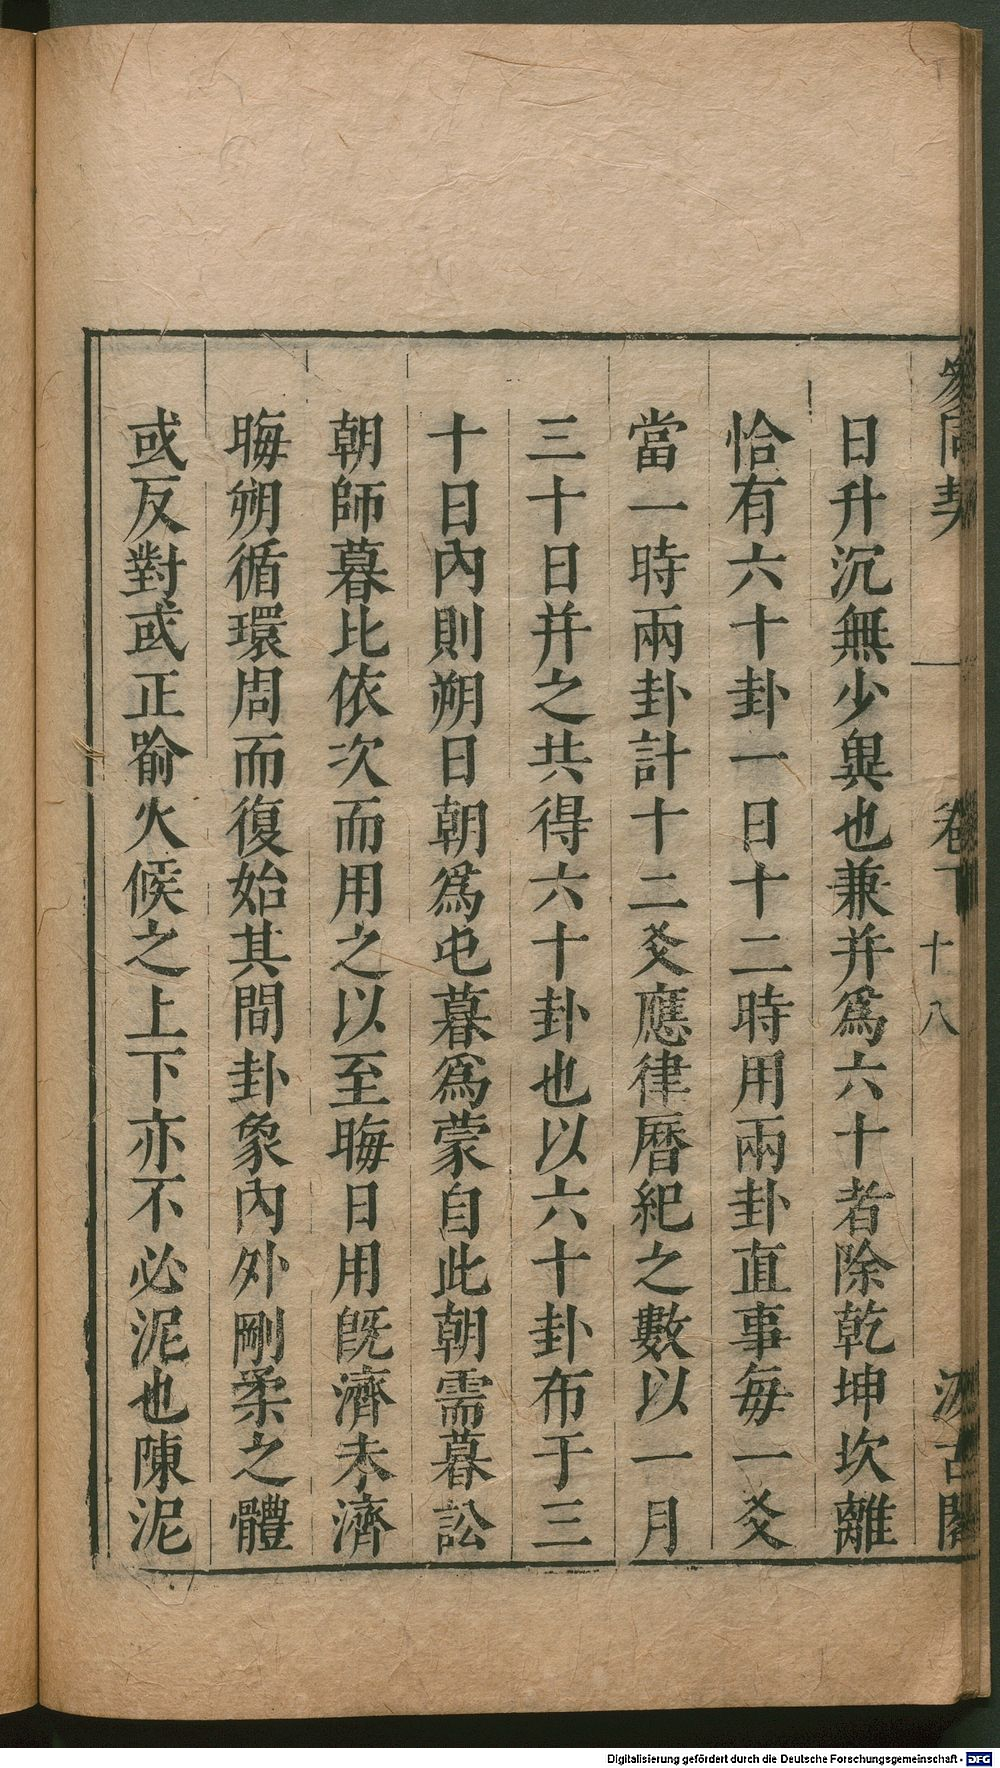 參同契 卷下 十八 汲古閣
日升沉無少異也兼并爲六十者除乾坤坎離
恰有六十卦一日十二時用兩卦直事每一爻
當一時兩卦計十二爻應律曆紀之數以一月
三十日并之共得六十卦也以六十卦布于三
十日內則朔日朝爲屯暮爲蒙自此朝需暮訟
朝師暮比依次而用之以至晦日用旣濟未濟
晦朔循環周而復始其間卦象內外剛柔之體
或反對或正喻火候之上下亦不必泥也陳泥
Digitalisierung gefördert durch die Deutsche Forschungsgemeinschaft - DFG